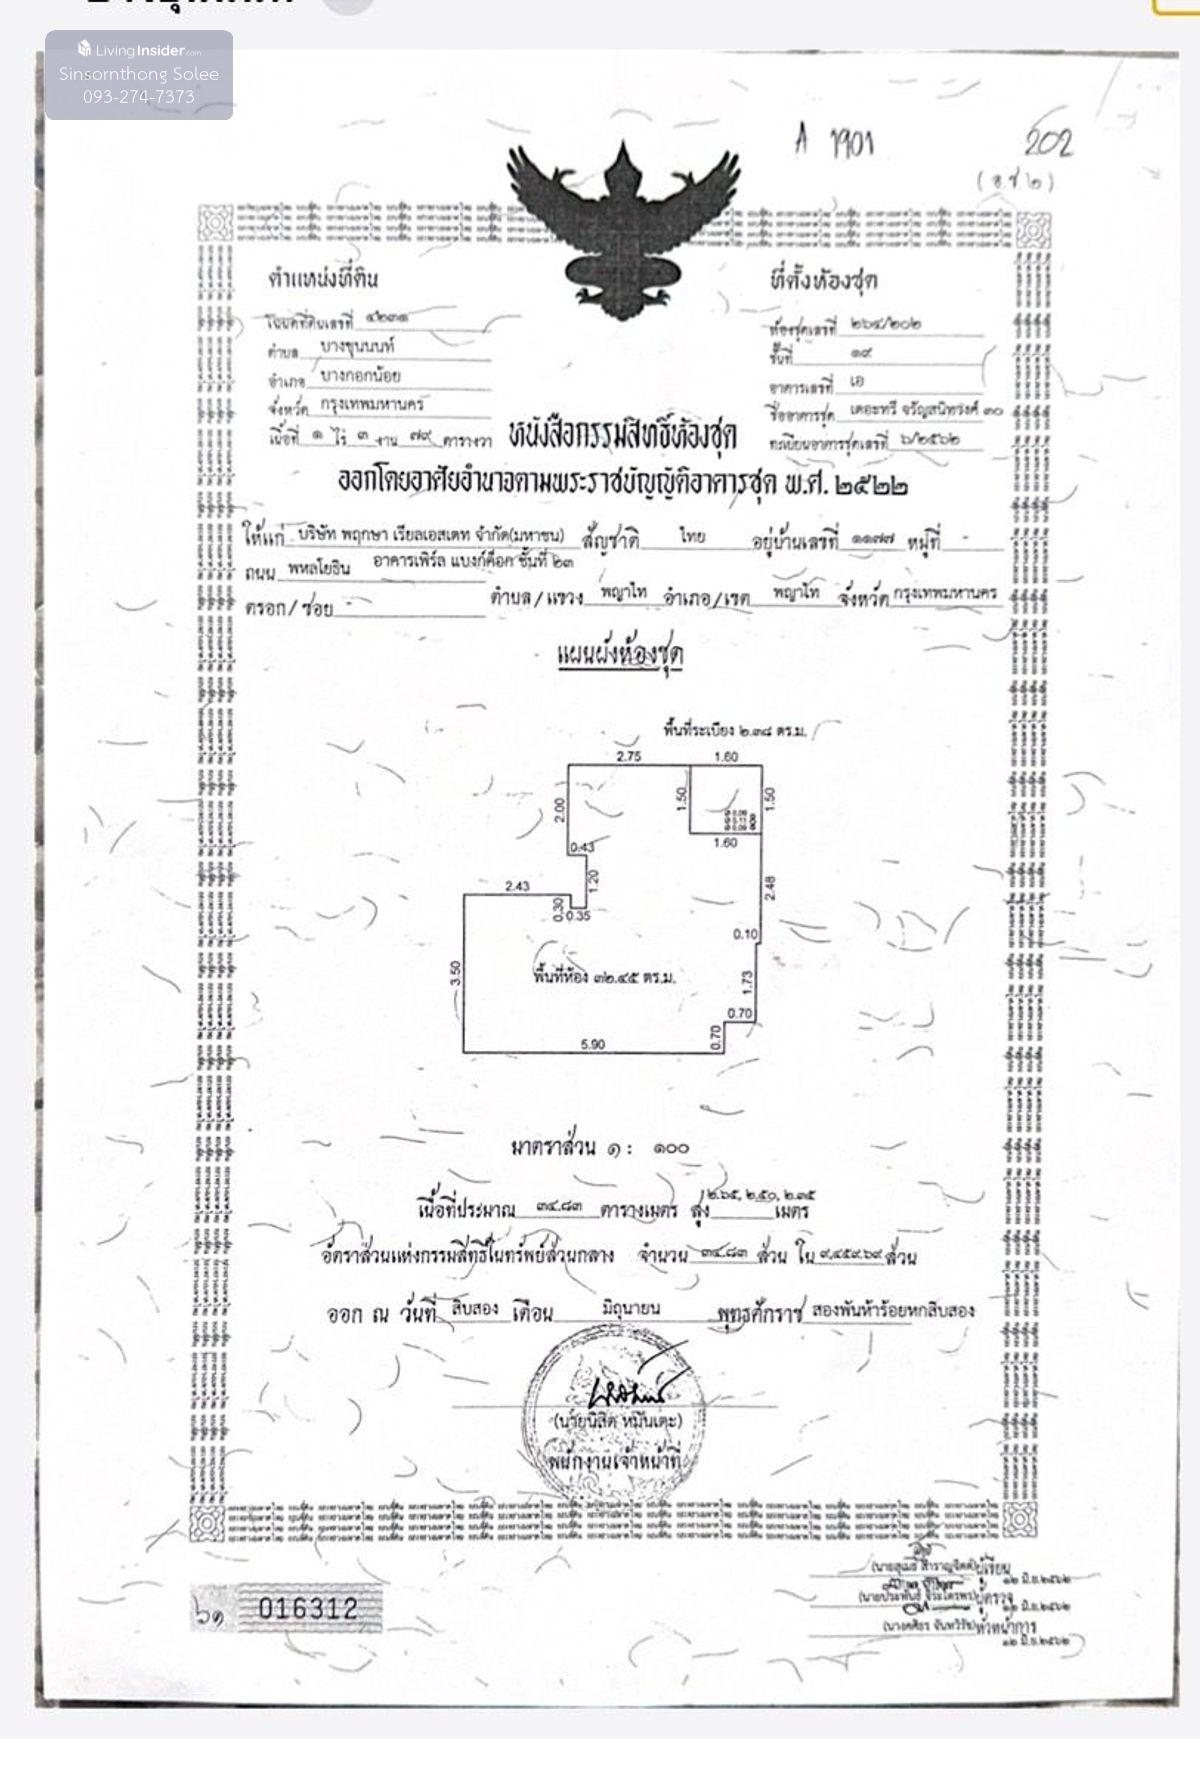 LivingInsider.com
Sinsornthong Solee
093-274-7373
A 1901 202
(อ.ช.๒)
ตำแหน่งที่ดิน
โฉนดที่ดินเลขที่ ๔๒๓๑
ตำบล บางขุนนนท์
อำเภอ บางกอกน้อย
จังหวัด กรุงเทพมหานคร
เนื้อที่ ๑ ไร่ ๓ งาน ๗๙ ตารางวา
ที่ตั้งห้องชุด
ห้องชุดเลขที่ ๒๖๔/๒๐๒
ชั้นที่ ๑๙
อาคารเลขที่ เอ
ชื่ออาคารชุด เดอะทรี จรัญสนิทวงศ์ ๓๐
ทะเบียนอาคารชุดเลขที่ ๖/๒๕๖๒
หนังสือกรรมสิทธิ์ห้องชุด
ออกโดยอาศัยอำนาจตามพระราชบัญญัติอาคารชุด พ.ศ. ๒๕๒๒
ให้แก่ บริษัท พฤกษา เรียลเอสเตท จำกัด(มหาชน) สัญชาติ ไทย อยู่บ้านเลขที่ ๑๑๗๗ หมู่ที่ -
ถนน พหลโยธิน อาคารเพิร์ล แบงก์ค็อก ชั้นที่ ๒๓
ตรอก/ซอย - ตำบล/แขวง พญาไท อำเภอ/เขต พญาไท จังหวัด กรุงเทพมหานคร
แผนผังห้องชุด
พื้นที่ระเบียง ๒.๓๘ ตร.ม.
2.75 1.60
2.00 1.50 1.50
1.60
0.43
1.20 2.48
2.43
0.30 0.35
0.10
พื้นที่ห้อง ๓๒.๔๕ ตร.ม.
3.50 1.73
0.70
0.70
5.90
มาตราส่วน ๑ : ๑๐๐
เนื้อที่ประมาณ ๓๔.๘๓ ตารางเมตร สูง ๒.๖๕, ๒.๕๐, ๒.๓๕ เมตร
อัตราส่วนแห่งกรรมสิทธิ์ในทรัพย์ส่วนกลาง จำนวน ๓๔.๘๓ ส่วน ใน ๙,๔๕๙.๖๙ ส่วน
ออก ณ วันที่ สิบสอง เดือน มิถุนายน พุทธศักราช สองพันห้าร้อยหกสิบสอง
(นายนิสิต หมีนเตะ)
พนักงานเจ้าหน้าที่
ผู้เขียน
๑๒ มิ.ย.๒๕๖๒
ผู้ตรวจ
๑๒ มิ.ย.๒๕๖๒
หัวหน้าการ
๑๒ มิ.ย.๒๕๖๒
๖๑ 016312